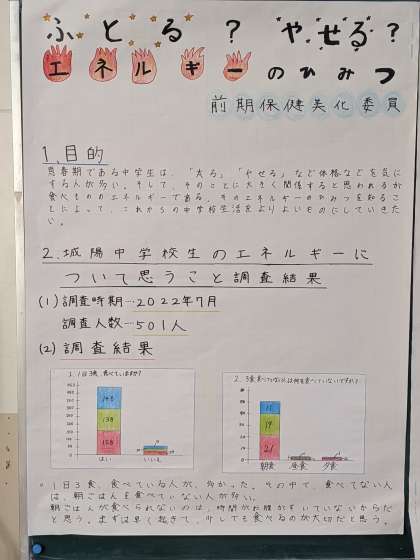 ふとる？やせる？
エネルギーのひみつ
前期保健美化委員
1.目的
思春期である中学生は、「太る」「やせる」など体格などを気に
する人が多い。そして、そのことに大きく関係すると思われるが
食べもののエネルギーである。そのエネルギーのひみつを知るこ
とによって、これからの中学校生活をよりよいものにしていきた
い。
2.城陽中学校生のエネルギーに
ついて思うこと調査結果
(1)調査時期…2022年7月
調査人数…501人
(2)調査結果
1.1日3食、食べていますか?
はい いいえ
朝食 昼食 夕食
。1日3食、食べている人が、多かった。その中で、食べてない人
は、朝ごはんを食べていない人が多い。
朝ごはんが食べられないのは、時間がお腹がすいていないからだ
と思う。まずは早く起きて、少しでも食べるのが大切だと思う。